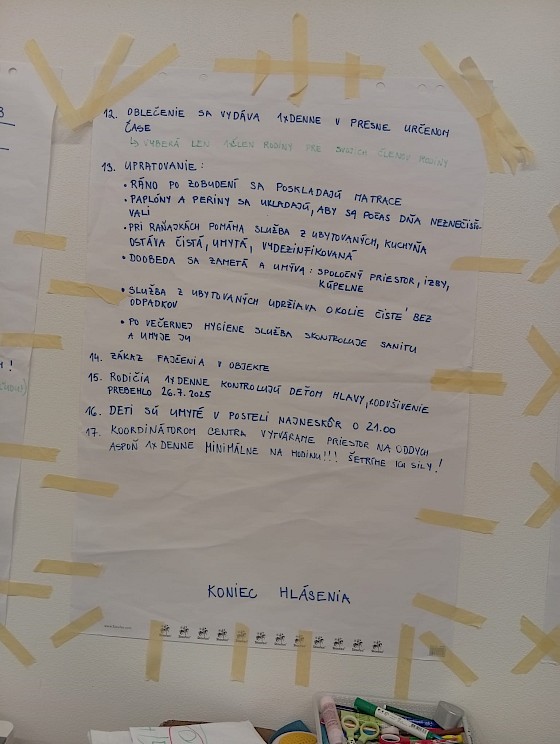 12. OBLEČENIE SA VYDÁVA 1xDENNE V PRESNE URČENOM
ČASE
↳ VYBERÁ LEN 1 ČLEN RODINY PRE SVOJICH ČLENOV RODINY
13. UPRATOVANIE:
• RÁNO PO ZOBUDENÍ SA POSKLADAJÚ MATRACE
• PAPLÓNY A PERINY SA UKLADAJÚ, ABY SA POČAS DŇA NEZNEČISŤO-
VALI
• PRI RAŇAJKÁCH POMÁHA SLUŽBA Z UBYTOVANÝCH, KUCHYŇA
OSTÁVA ČISTÁ, UMYTÁ, VYDEZINFIKOVANÁ
• DOOBEDA SA ZAMETÁ A UMÝVA: SPOLOČNÝ PRIESTOR, IZBY,
KÚPELNE
• SLUŽBA Z UBYTOVANÝCH UDRŽIAVA OKOLIE ČISTÉ BEZ
ODPADKOV
• PO VEČERNEJ HYGIENE SLUŽBA SKONTROLUJE SANITU
A UMYJE JU
14. ZÁKAZ FAJČENIA V OBJEKTE
15. RODIČIA 1xDENNE KONTROLUJÚ DEŤOM HLAVY, ODVŠIVENIE
PREBEHLO 26.7.2025
16. DETI SÚ UMYTÉ V POSTELI NAJNESKÔR O 21.00
17. KOORDINÁTOROM CENTRA VYTVÁRAME PRIESTOR NA ODDYCH
ASPOŇ 1xDENNE MINIMÁLNE NA HODINU!!! ŠETRÍME ICH SILY!
KONIEC HLÁSENIA